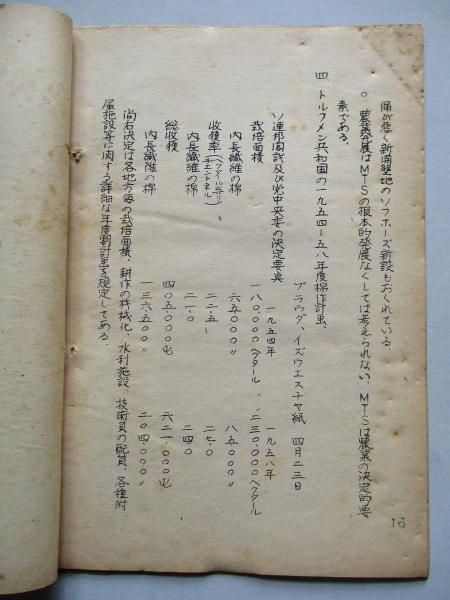 備が悪く新開墾地のソフホーズ新設もおくれている
○ 農業発展はMTSの根本的発展なくしては考えられない、MTSは農業の決定的要
素である。
四、トルクメン共和国の一九五四ー五八年度棉作計画、
プラウダ、イズウエスチヤ紙 四月二三日
ソ連邦閣議及び党中央委の決定要点
一九五四年 一九五八年
栽培面積 一八〇.〇〇〇ヘクタール 二三〇.〇〇〇ヘクタール
内長繊維の棉 六五〇〇〇〃 八五〇〇〇〃
収獲率(ヘクタール当り ツエントネル) 二二.五 二七.〇
内長繊維の棉 二一.〇 二四.〇
総収獲 四〇五〇〇〇屯 六二一.〇〇〇屯
内長繊維の棉 一三六.五〇〇〃 二〇四.〇〇〇〃
尚右決定は各地方毎の栽培面積、耕作の機械化、水利施設、技術員の配員、各種附
属施設等に関する詳細な年度割計画を規定してある.
16